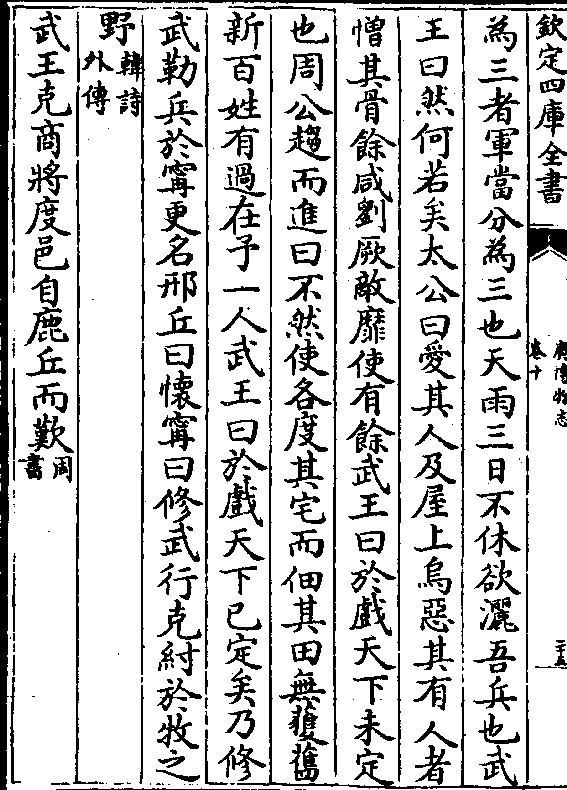 欽定四庫全書
廣博物志
卷十
二十五
為三者軍當分為三也天雨三日不休欲灑吾兵也武
王曰然何若矣太公曰愛其人及屋上烏惡其有人者
憎其骨餘咸劉厥敵靡使有餘武王曰於戲天下未定
也周公趨而進曰不然使各度其宅而佃其田無獲舊
新百姓有過在予一人武王曰於戲天下已定矣乃修
武勒兵於甯更名邢丘曰懷甯曰修武行克紂於牧之
野韓詩外傳
武王克商將度邑自鹿丘而歎周書